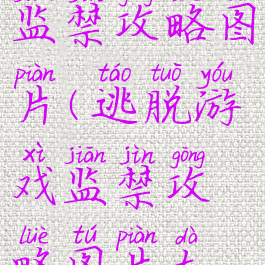 监禁攻略图
piàn táo tuō yóu
片(逃脱游
xì jiān jìn gōng
戏监禁攻
lüè tú piàn dà
略图片大